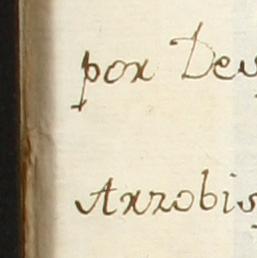 por Deu
Arzobis